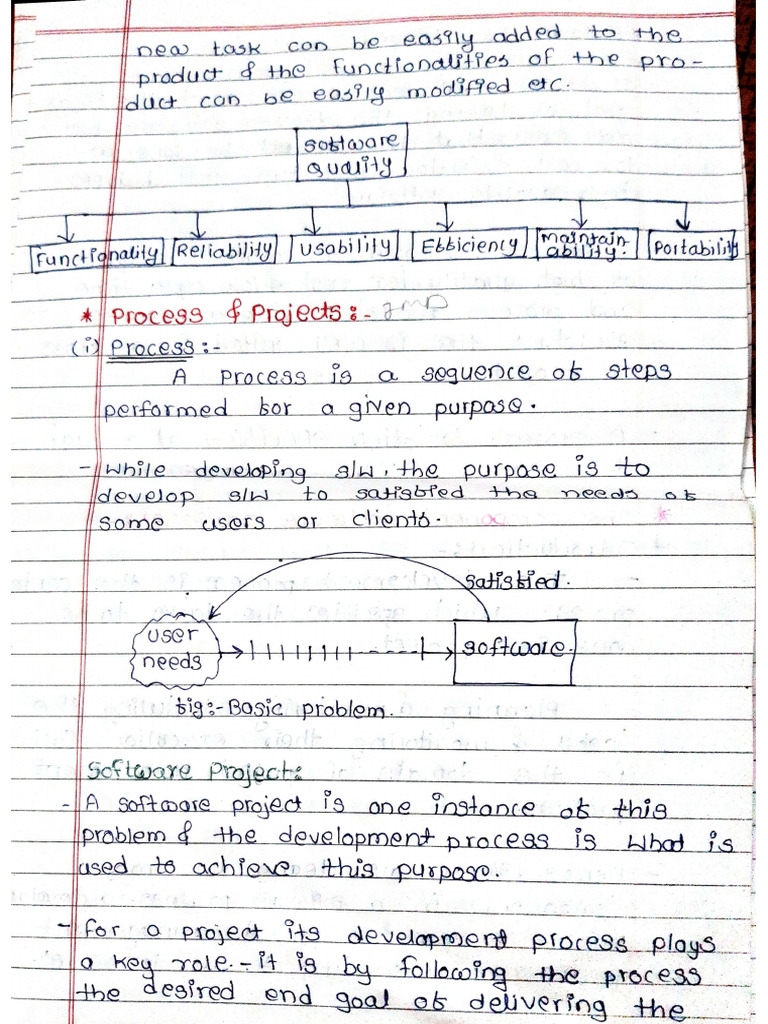 new task can be easily added to the
product & the functionalities of the pro-
duct can be easily modified etc.
Software
Quality
Functionality Reliability Usability Efficiency Maintain Portability
ability.
* Process & Projects:- Imp
(i) Process:-
A process is a sequence of steps
performed for a given purpose.
- While developing s/w, the purpose is to
develop s/w to satisfied the needs of
some users or clients.
satisfied.
user
needs
software.
fig:- Basic problem.
Software Project:
- A software project is one instance of this
problem & the development process is what is
used to achieve this purpose.
- for a project its development process plays
a key role. - it is by following the process
the desired end goal of delivering the